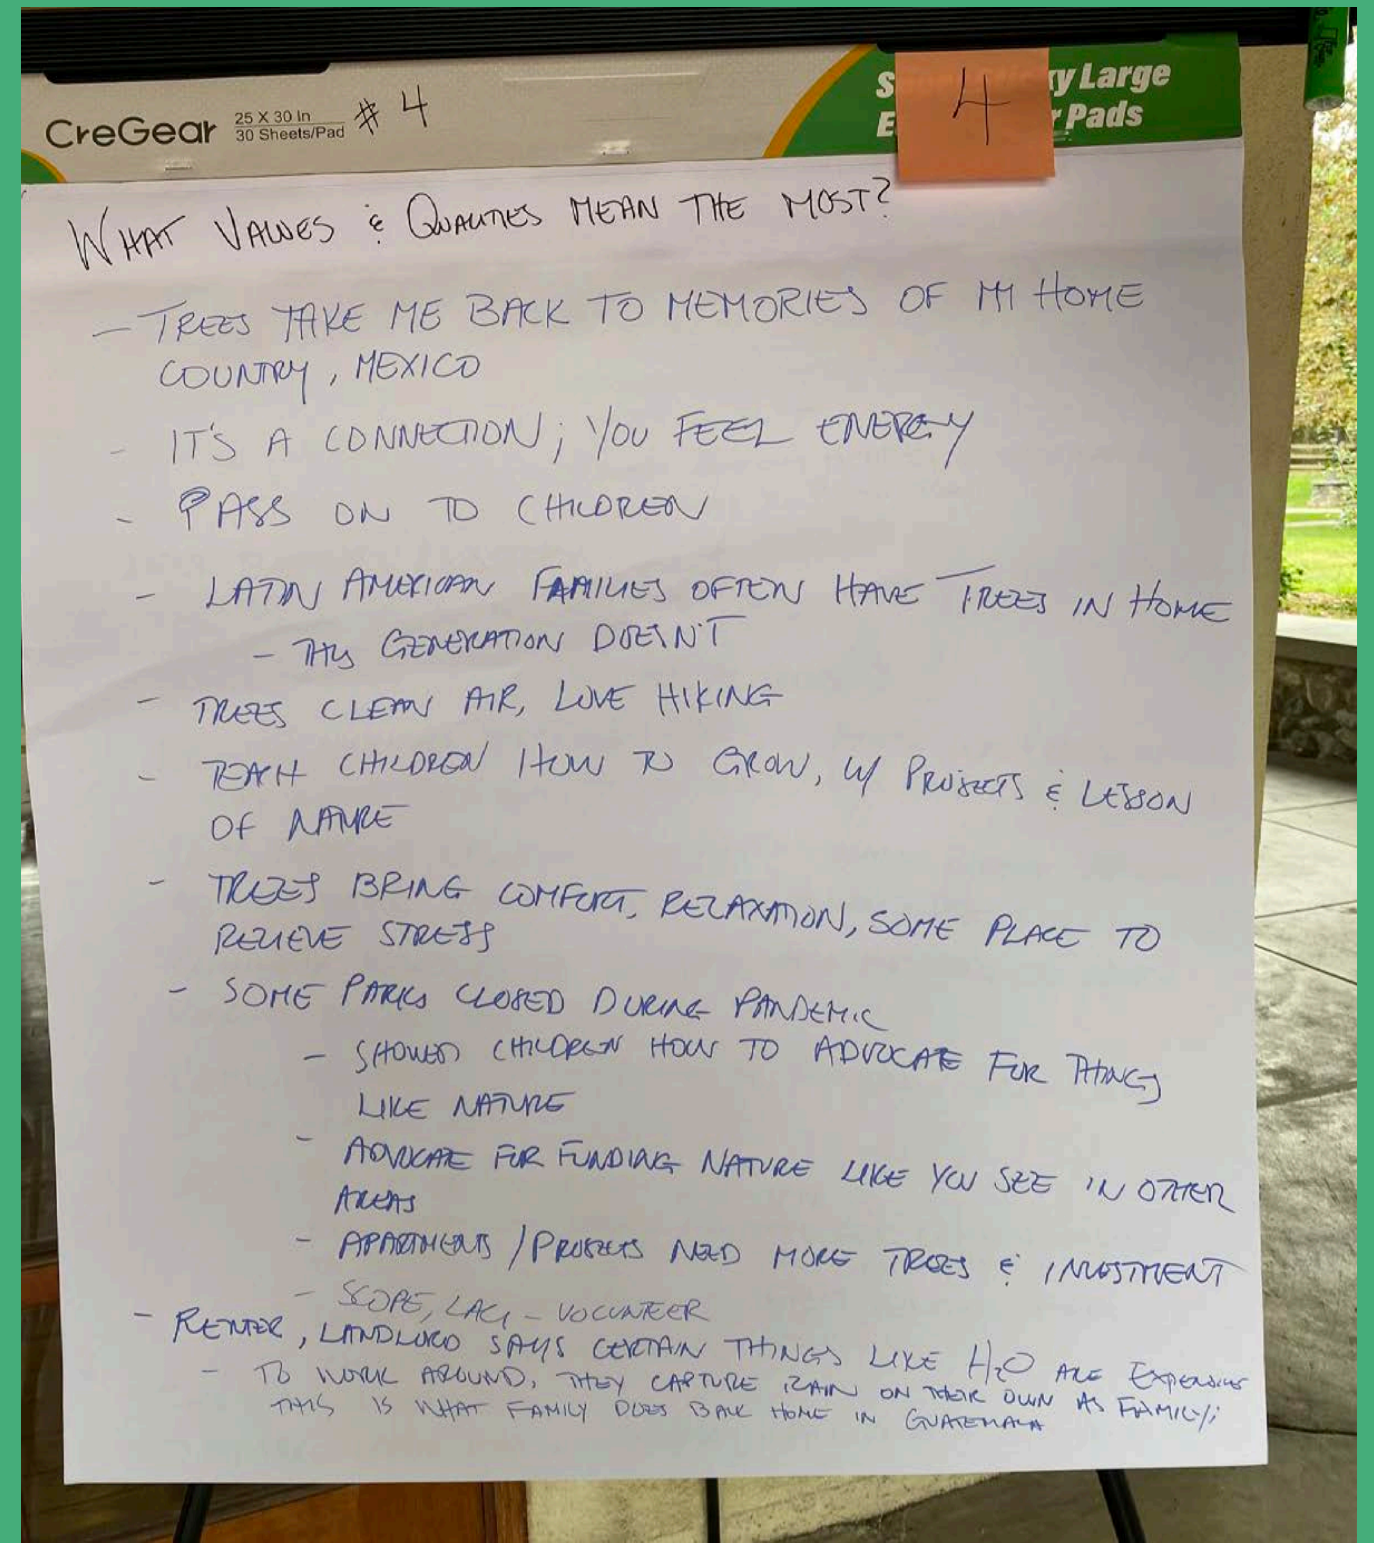 CreGear
25 X 30 In
30 Sheets/Pad
# 4
4
y Large
Pads
WHAT VALUES & QUALITIES MEAN THE MOST?
- TREES TAKE ME BACK TO MEMORIES OF MY HOME
COUNTRY, MEXICO
- IT'S A CONNECTION; YOU FEEL ENERGY
- PASS ON TO CHILDREN
- LATIN AMERICAN FAMILIES OFTEN HAVE TREES IN HOME
- THIS GENERATION DOESN'T
- TREES CLEAN AIR, LOVE HIKING
- TEACH CHILDREN HOW TO GROW, W/ PROJECTS & LESSON
OF NATURE
- TREES BRING COMFORT, RELAXATION, SOME PLACE TO
RELIEVE STRESS
- SOME PARKS CLOSED DURING PANDEMIC
- SHOWED CHILDREN HOW TO ADVOCATE FOR THINGS
LIKE NATURE
- ADVOCATE FOR FUNDING NATURE LIKE YOU SEE IN OTHER
AREAS
- APARTMENTS / PROJECTS NEED MORE TREES & INVESTMENT
- SCOPE, LACI - VOLUNTEER
- RENTER, LANDLORD SAYS CERTAIN THINGS LIKE H2O ARE EXPENSIVE
- TO WORK AROUND, THEY CAPTURE RAIN ON THEIR OWN AS FAMILY;
THIS IS WHAT FAMILY DOES BACK HOME IN GUATEMALA